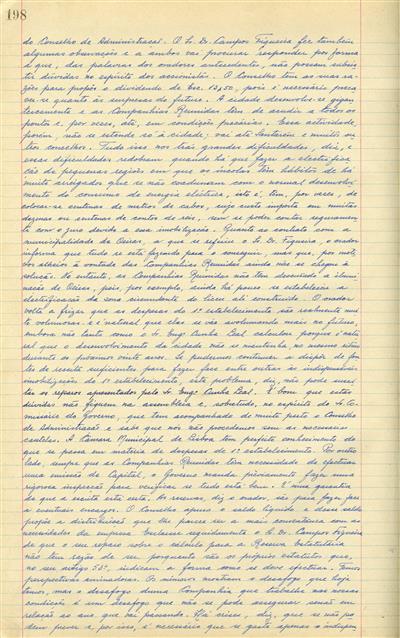 198
do Conselho de Administração. O Sr. Dr. Campos Figueira fez também
algumas observações e a ambos vai procurar responder por forma
a que, das palavras dos oradores antecedentes, não possam subsis-
tir dúvidas no espírito dos accionistas. O Conselho tem as suas ra-
zões para propôr o dividendo de Esc. 13,50, pois é necessário preca-
ver-se quanto às empresas do futuro. A cidade desenvolve-se gigan-
tescamente e as Companhias Reunidas têm de acudir a todos os
pontos e, por vezes, até, em condições precárias. Essa actividade,
porém, não se estende só à cidade; vai até Santarém e muitos ou-
tros concelhos. Tudo isso nos traz grandes dificuldades, diz, e
essas dificuldades redobram quando há que fazer a electrifica-
ção de pequenas regiões em que os incolas têm hábitos de há
muito arreigados que se não coadunam com o normal desenvolvi-
mento do consumo de energia eléctrica, isto é, tem, por vezes, de
colocar-se centenas de metros de cabos, cujo custo importa em muitas
dezenas ou centenas de contos de réis, sem se poder contar seguramen-
te com o juro devido a essa imobilização. Quanto ao contrato com a
municipalidade de Oeiras, a que se referiu o Sr. Dr. Figueira, o orador
informa que tudo se está fazendo para o conseguir, mas que, por moti-
vos alheios à vontade das Companhias Reunidas ainda não se chegou à
solução. No entanto, as Companhias Reunidas não têm descurado a ilumi-
nação de Oeiras, pois, por exemplo, ainda há pouco se estabeleceu a
electrificação da zona circundante do liceu ali construído. O orador
volta a frizar que as despesas do 1º estabelecimento, são realmente mui-
to volumosas e é natural que elas se vão avolumando mais no futuro,
embora não tanto como o Sr. Engº Cunha Leal calculou porque é natu-
ral que o desenvolvimento da cidade não se mantenha, no mesmo ritmo
durante os próximos vinte anos. Se pudermos continuar a dispôr de fon-
tes de receita suficientes para fazer face entre outras às indispensáveis
imobilizações do 1º estabelecimento, este problema, diz, não pode susci-
tar os reparos apresentados pelo Sr. Engº Cunha Leal. É bom que estas
dúvidas não fiquem na assembleia e, sobretudo, no espírito do Sr. Co-
missário do Governo, que tem acompanhado de muito perto o Conselho
de Administração e sabe que nós não procedemos sem as necessárias
cautelas. A Câmara Municipal de Lisboa tem perfeito conhecimento do
que se passa em matéria de despesas do 1º estabelecimento. Por outro
lado, sempre que as Companhias Reunidas têm necessidade de efectuar
uma emissão de Capital, o Governo manda previamente fazer uma
rigorosa inspecção para verificar se tudo está bem. É uma garantia
de que a escrita está certa. As reservas, diz o orador, são para fazer face
a eventuais encargos. O Conselho apura o saldo líquido e desse saldo
propõe a distribuição que lhe parece ser a mais consentânea com as
necessidades da empresa. Esclarece seguidamente o Sr. Dr. Campos Figueira
de que o seu reparo sobre o cálculo para a Reserva Estatutária
não tem razão de ser porquanto são os próprios estatutos que,
no seu artigo 55º, indicam a forma como se deve efectuar. Temos
perspectivas animadoras. Os números mostram o desafogo que hoje
temos, mas o desafogo duma Companhia que trabalha nas nossas
condições é um desafogo que não se pode assegurar senão em
relação ao ano que vai passando. Há crises, diz, que se não po-
dem prever e, por isso, é necessário que se gaste apenas o indispen-